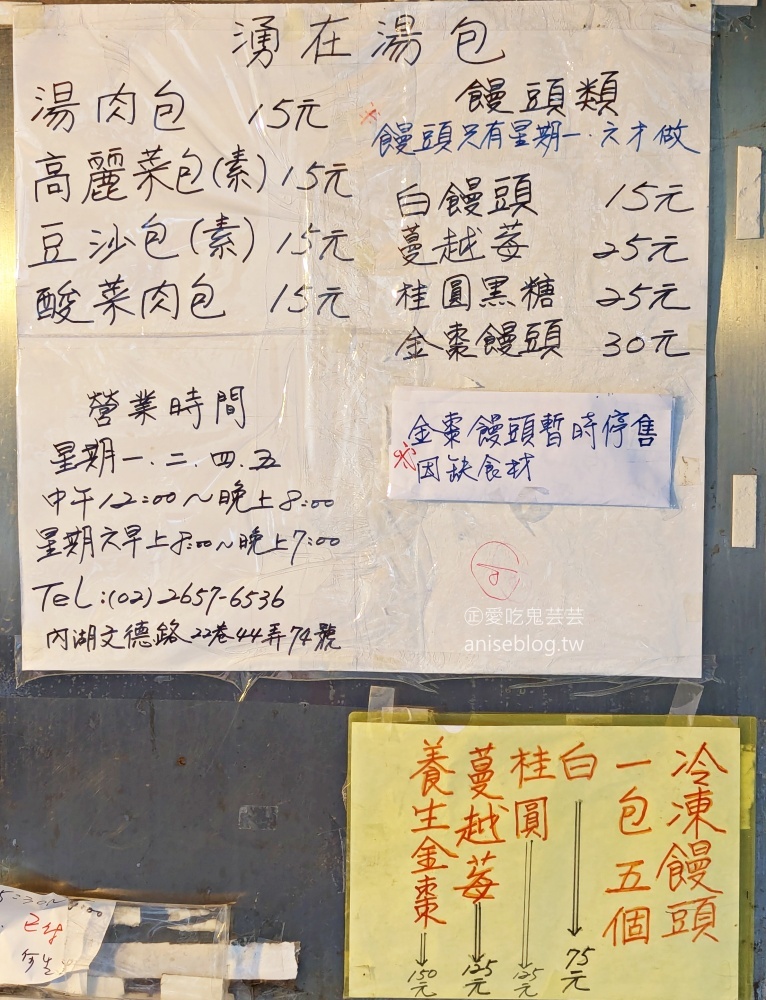 湧在湯包
湯肉包 15元
高麗菜包(素) 15元
豆沙包(素) 15元
酸菜肉包 15元
饅頭類
饅頭只有星期一.六才做
白饅頭 15元
蔓越莓 25元
桂圓黑糖 25元
金棗饅頭 30元
金棗饅頭暫時停售
因缺食材
營業時間
星期一.二.四.五
中午12:00~晚上8:00
星期六早上8:00~晚上7:00
TeL:(02)2657-6536
內湖文德路22巷44弄74號
㊣愛吃鬼芸芸
aniseblog.tw
冷凍饅頭
一包五個
白 75元
桂圓 125元
蔓越莓 125元
養生金棗 150元